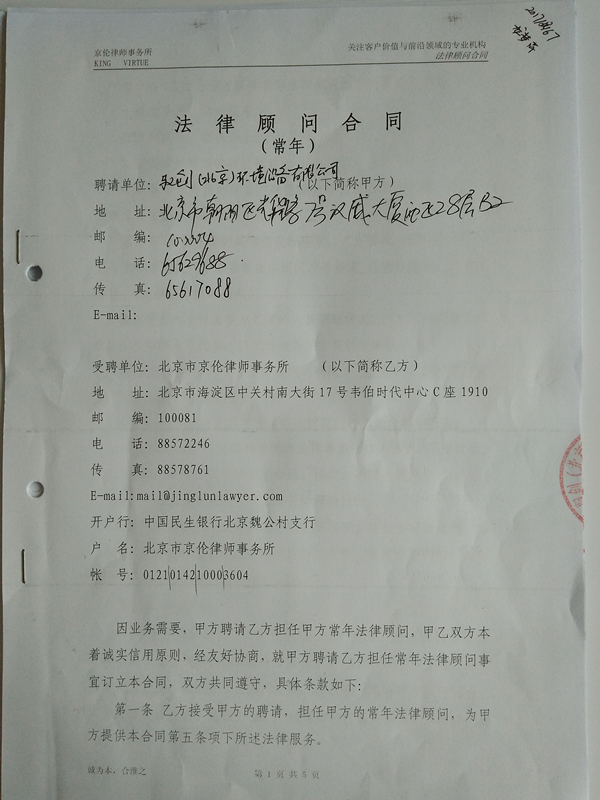 京伦律师事务所
KING VIRTUE
关注客户价值与前沿领域的专业机构
法律顾问合同
法律顾问合同
(常年)
聘请单位: (北京)环境设备有限公司 (以下简称甲方)
地 址: 北京市朝阳区光华路 号汉威大厦西区28层B2
邮 编:
电 话: 65629688
传 真: 65617088
E-mail:
受聘单位: 北京市京伦律师事务所 (以下简称乙方)
地 址: 北京市海淀区中关村南大街17号韦伯时代中心C座1910
邮 编: 100081
电 话: 88572246
传 真: 88578761
E-mail:mail@jinglunlawyer.com
开户行: 中国民生银行北京魏公村支行
户 名: 北京市京伦律师事务所
帐 号: 0121014210003604
因业务需要, 甲方聘请乙方担任甲方常年法律顾问, 甲乙双方本
着诚实信用原则, 经友好协商, 就甲方聘请乙方担任常年法律顾问事
宜订立本合同, 双方共同遵守, 具体条款如下:
第一条 乙方接受甲方的聘请, 担任甲方的常年法律顾问, 为甲
方提供本合同第五条项下所述法律服务。
诚为本, 合淮之
第 1 页 共 5 页